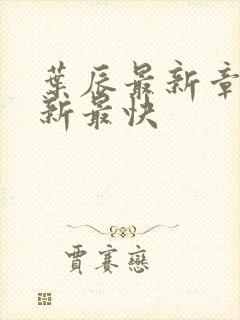 葉辰最新章
新最快
賈賽戀